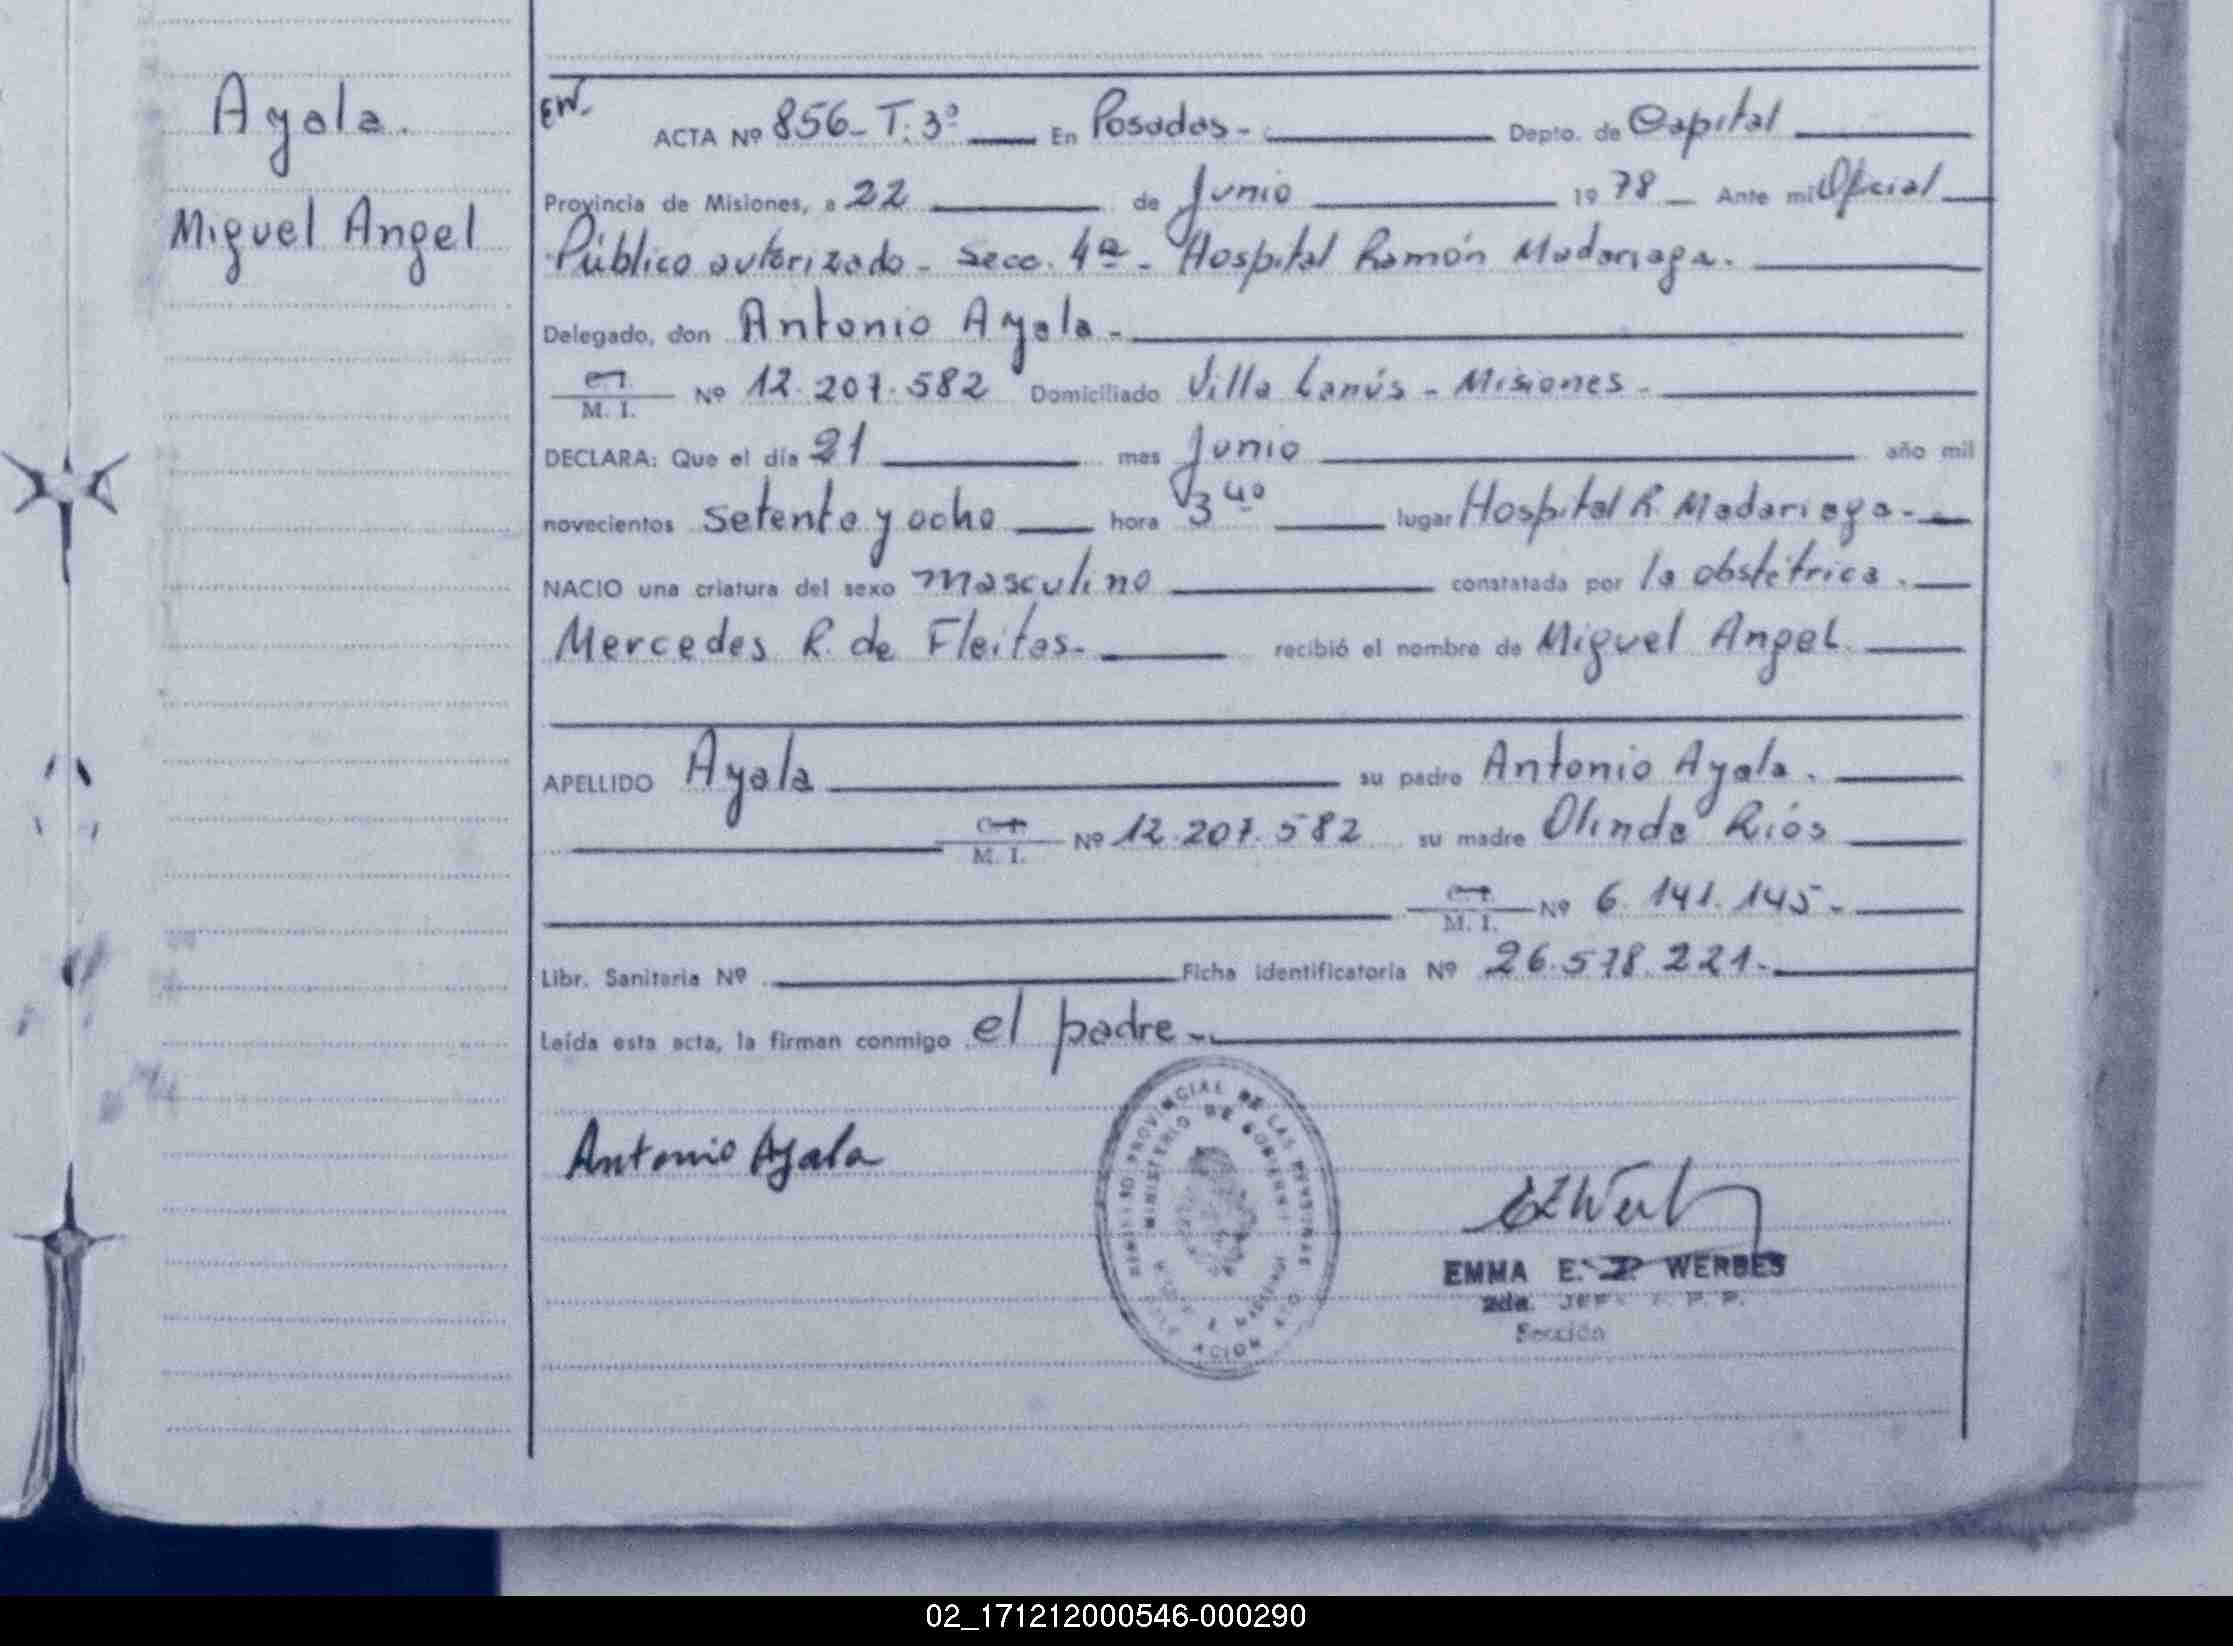 Ayala.
Miguel Angel
EW.
ACTA Nº 856- T. 3º En Posadas- Depto. de Capital
Provincia de Misiones, a 22 de Junio 19 78 Ante mi Oficial
Público autorizado - Secc. 4ª - Hospital Ramón Madariaga.
Delegado, don Antonio Ayala-
M. I. Nº 12.207.582 Domiciliado Villa Lanús - Misiones-
DECLARA: Que el día 21 mes Junio año mil
novecientos setenta y ocho hora 3 40 lugar Hospital R. Madariaga-
NACIO una criatura del sexo masculino constatada por la obstétrica.
Mercedes R. de Fleitas- recibió el nombre de Miguel Angel
APELLIDO Ayala su padre Antonio Ayala.
M. I. Nº 12.207.582 su madre Olinda Ríos
M. I. Nº 6.141.145-
Libr. Sanitaria Nº Ficha identificatoria Nº 26.578.221-
Leída esta acta, la firman conmigo el padre-
Antonio Ayala
PROVINCIAL DE LAS PERSONAS
MINISTERIO DE GOBIERNO
EMMA E. WERBES
2da. JEFE
Sección
02_171212000546-000290